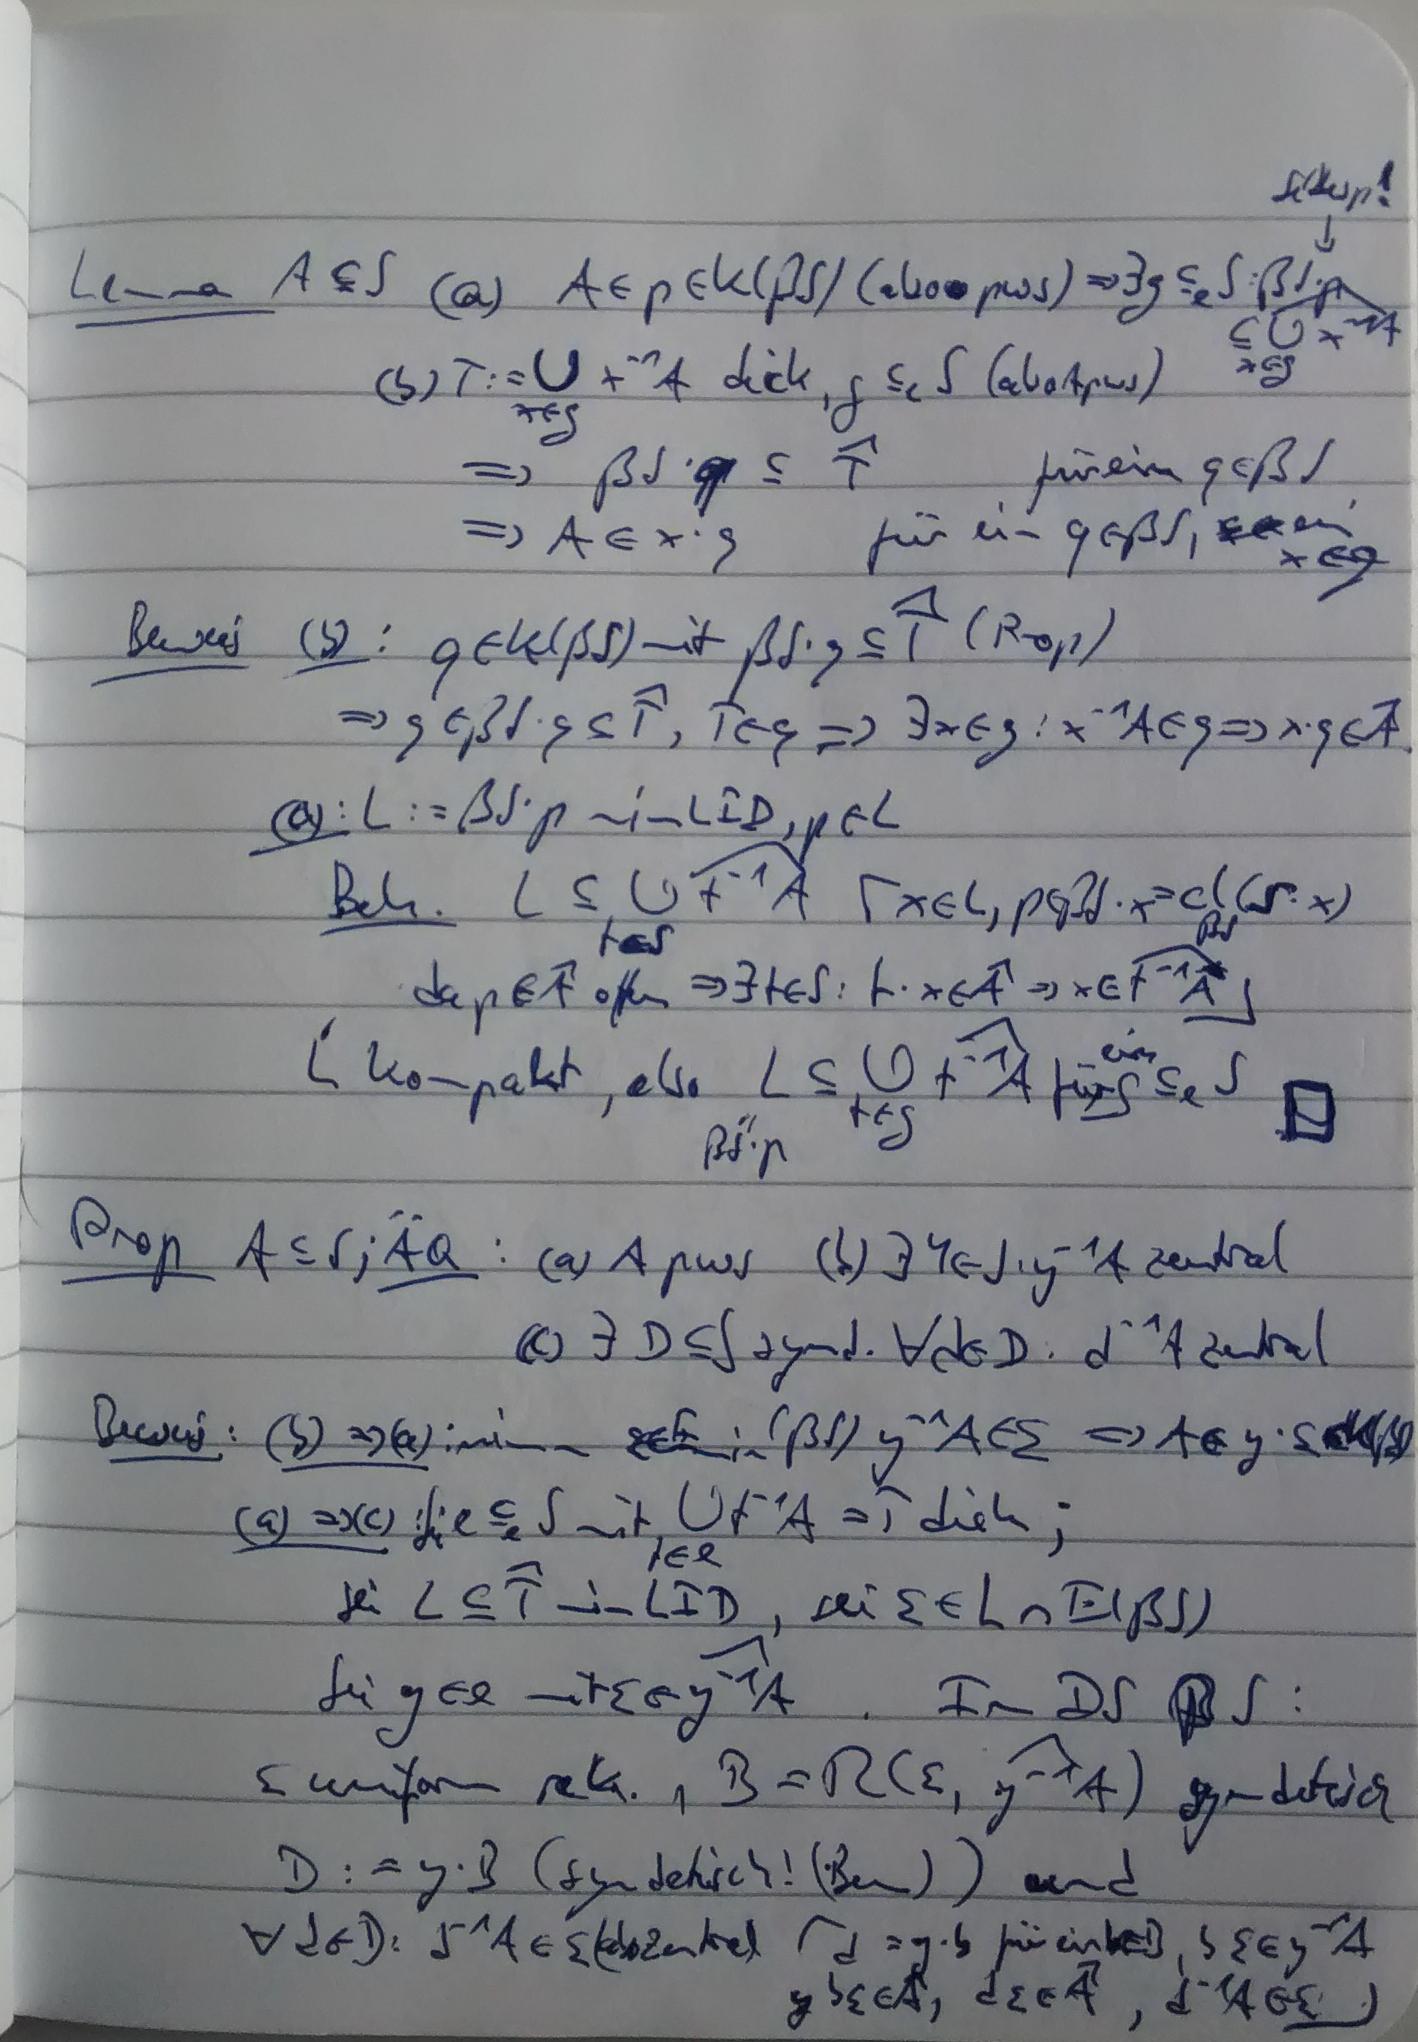 ↓
Lemma A ⊆ S (a) A ∈ p ∈ K(βS) (also pws) ⇒ ∃ g ⊆ₑ S: βS·p
⊆ ⋃_{x∈g} x⁻¹A
(b) T := ⋃_{x∈g} x⁻¹A dick, g ⊆ₑ S (also A pws)
⇒ βS·q ⊆ T̂ für ein q ∈ βS
⇒ A ∈ x·q für ein q ∈ βS, ein x ∈ g
Beweis (b): q ∈ K(βS) mit βS·q ⊆ T̂ (Prop)
⇒ q ∈ βS·q ⊆ T̂, T ∈ q ⇒ ∃x ∈ g: x⁻¹A ∈ q ⇒ x·q ∈ Â
(a): L := βS·p min LID, p ∈ L
Beh. L ⊆ ⋃_{t∈S} t⁻¹A ⌈ x ∈ L, p ∈ βS·x = cl_{βS}(S·x)
da p ∈ Â offen ⇒ ∃t ∈ S: t·x ∈ Â ⇒ x ∈ t⁻¹A ⌋
L kompakt, also L ⊆ ⋃_{t∈g} t⁻¹A für ein g ⊆ₑ S □
βS·p
Prop A ⊆ S; ÄQ: (a) A pws (b) ∃ y ∈ S. y⁻¹A zentral
(c) ∃ D ⊆ S synd. ∀d ∈ D: d⁻¹A zentral
Beweis: (b) ⇒ (a): nimm (βS) y⁻¹A ∈ ε ⇒ A ∈ y·ε
(a) ⇒ (c): Sei e ⊆ₑ S mit ⋃_{t∈e} t⁻¹A = T dick;
sei L ⊆ T̂ min LID, sei ε ∈ L ∩ E(βS)
Sei y ∈ e mit ε ∈ y⁻¹A. Im DS βS:
ε uniform rek., B = R(ε, y⁻¹A) syndetisch
D := y·B (syndetisch! (Bem)) und
∀d ∈ D: d⁻¹A ∈ ε (also zentral ⌈ d = y·b für ein b ∈ B, bε ∈ y⁻¹A
ybε ∈ Â, dε ∈ Â, d⁻¹A ∈ ε ⌋